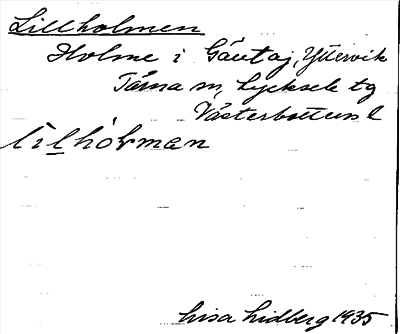 Lillholmen
Holme i Gäutaj, Yttervik
Tärna sn, Lycksele tg
Västerbottens l
lìlhòlman
Lisa Lidberg 1935